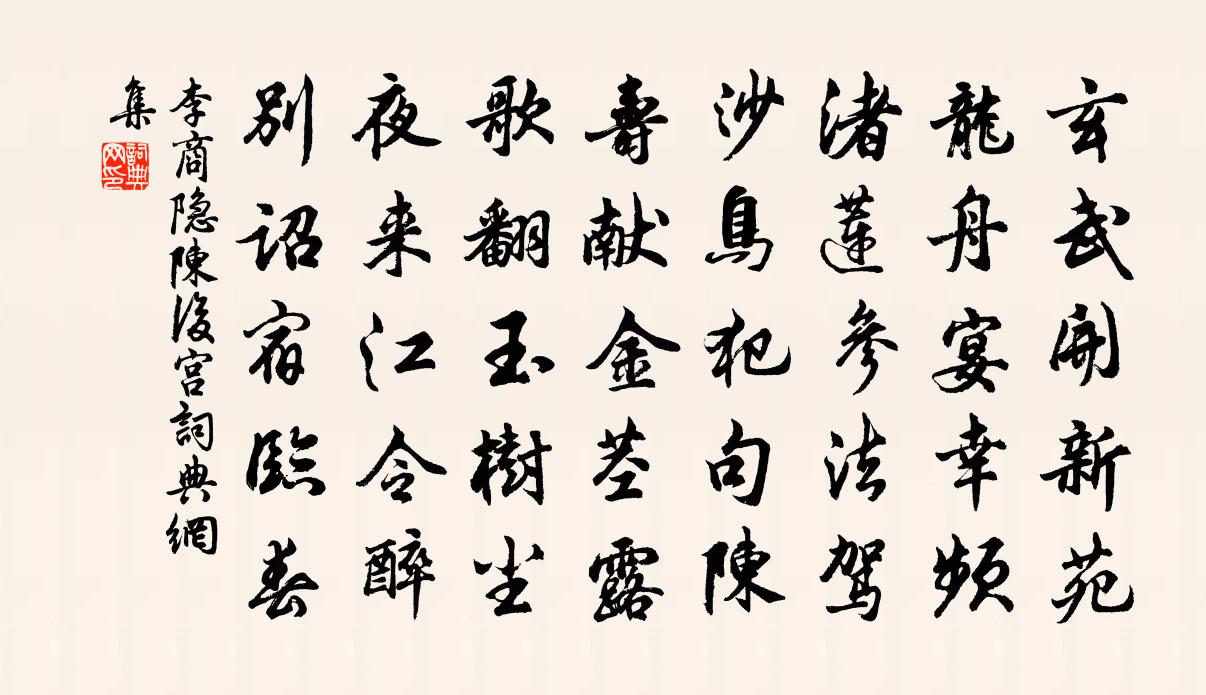 玄武開新苑
龍舟宴幸頻
渚蓮參法駕
沙鳥犯句陳
壽献金莖露
歌翻玉樹尘
夜来江令醉
别詔宿臨春
李商隐陳後宫詞典網
集
詞典網印